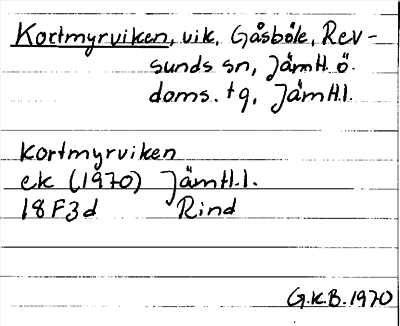 Kortmyrviken, vik, Gåsböle, Rev-
sunds sn, Jämtl. ö.
doms. tg, Jämtl.l.
Kortmyrviken
ek (1970) Jämtl.l.
18F3d Rind
G.K.B. 1970